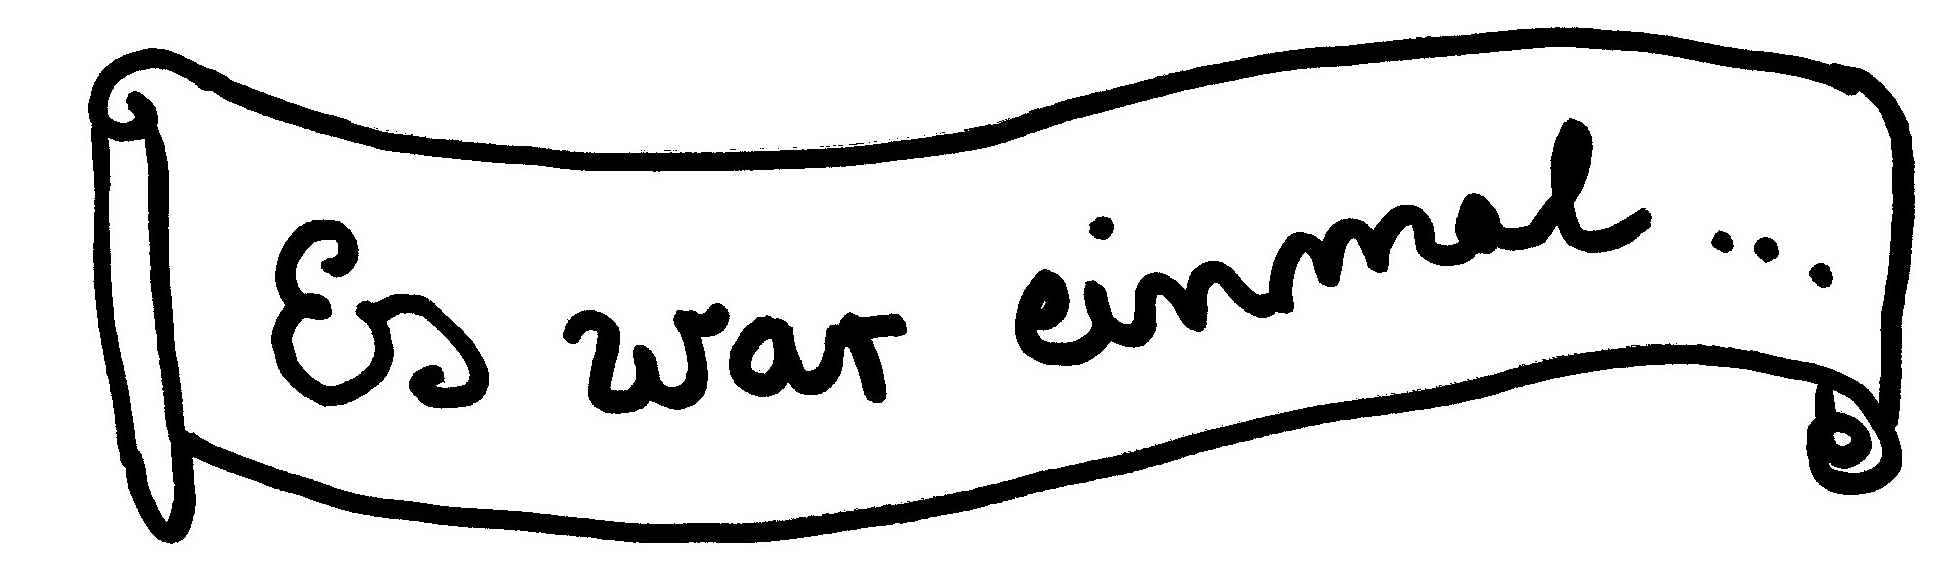 Es war einmal...